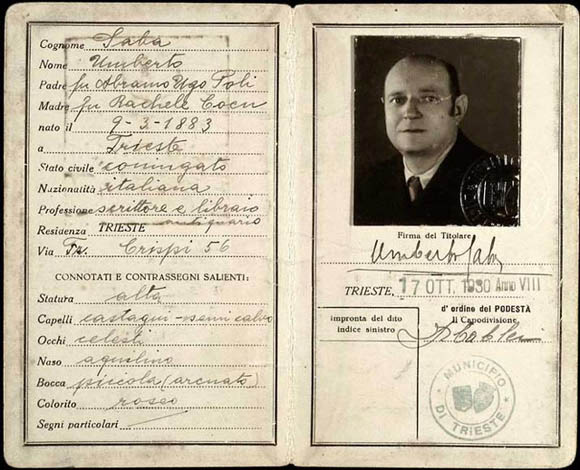 Cognome Saba
Nome Umberto
Padre fu Abramo Ugo Poli
Madre fu Rachele Coen
nato il 9-3-1883
a Trieste
Stato civile coniugato
Nazionalità italiana
Professione scrittore e libraio
antiquario
Residenza TRIESTE
Via Fr. Crispi 56
CONNOTATI E CONTRASSEGNI SALIENTI:
Statura alta
Capelli castagni - semi calvo
Occhi celesti
Naso aquilino
Bocca piccola (arcuato)
Colorito roseo
Segni particolari
Firma del Titolare
Umberto Saba
TRIESTE, 17 OTT. 1930 Anno VIII
impronta del dito
indice sinistro
d'ordine del PODESTÀ
Il Capodivisione
MUNICIPIO
DI TRIESTE